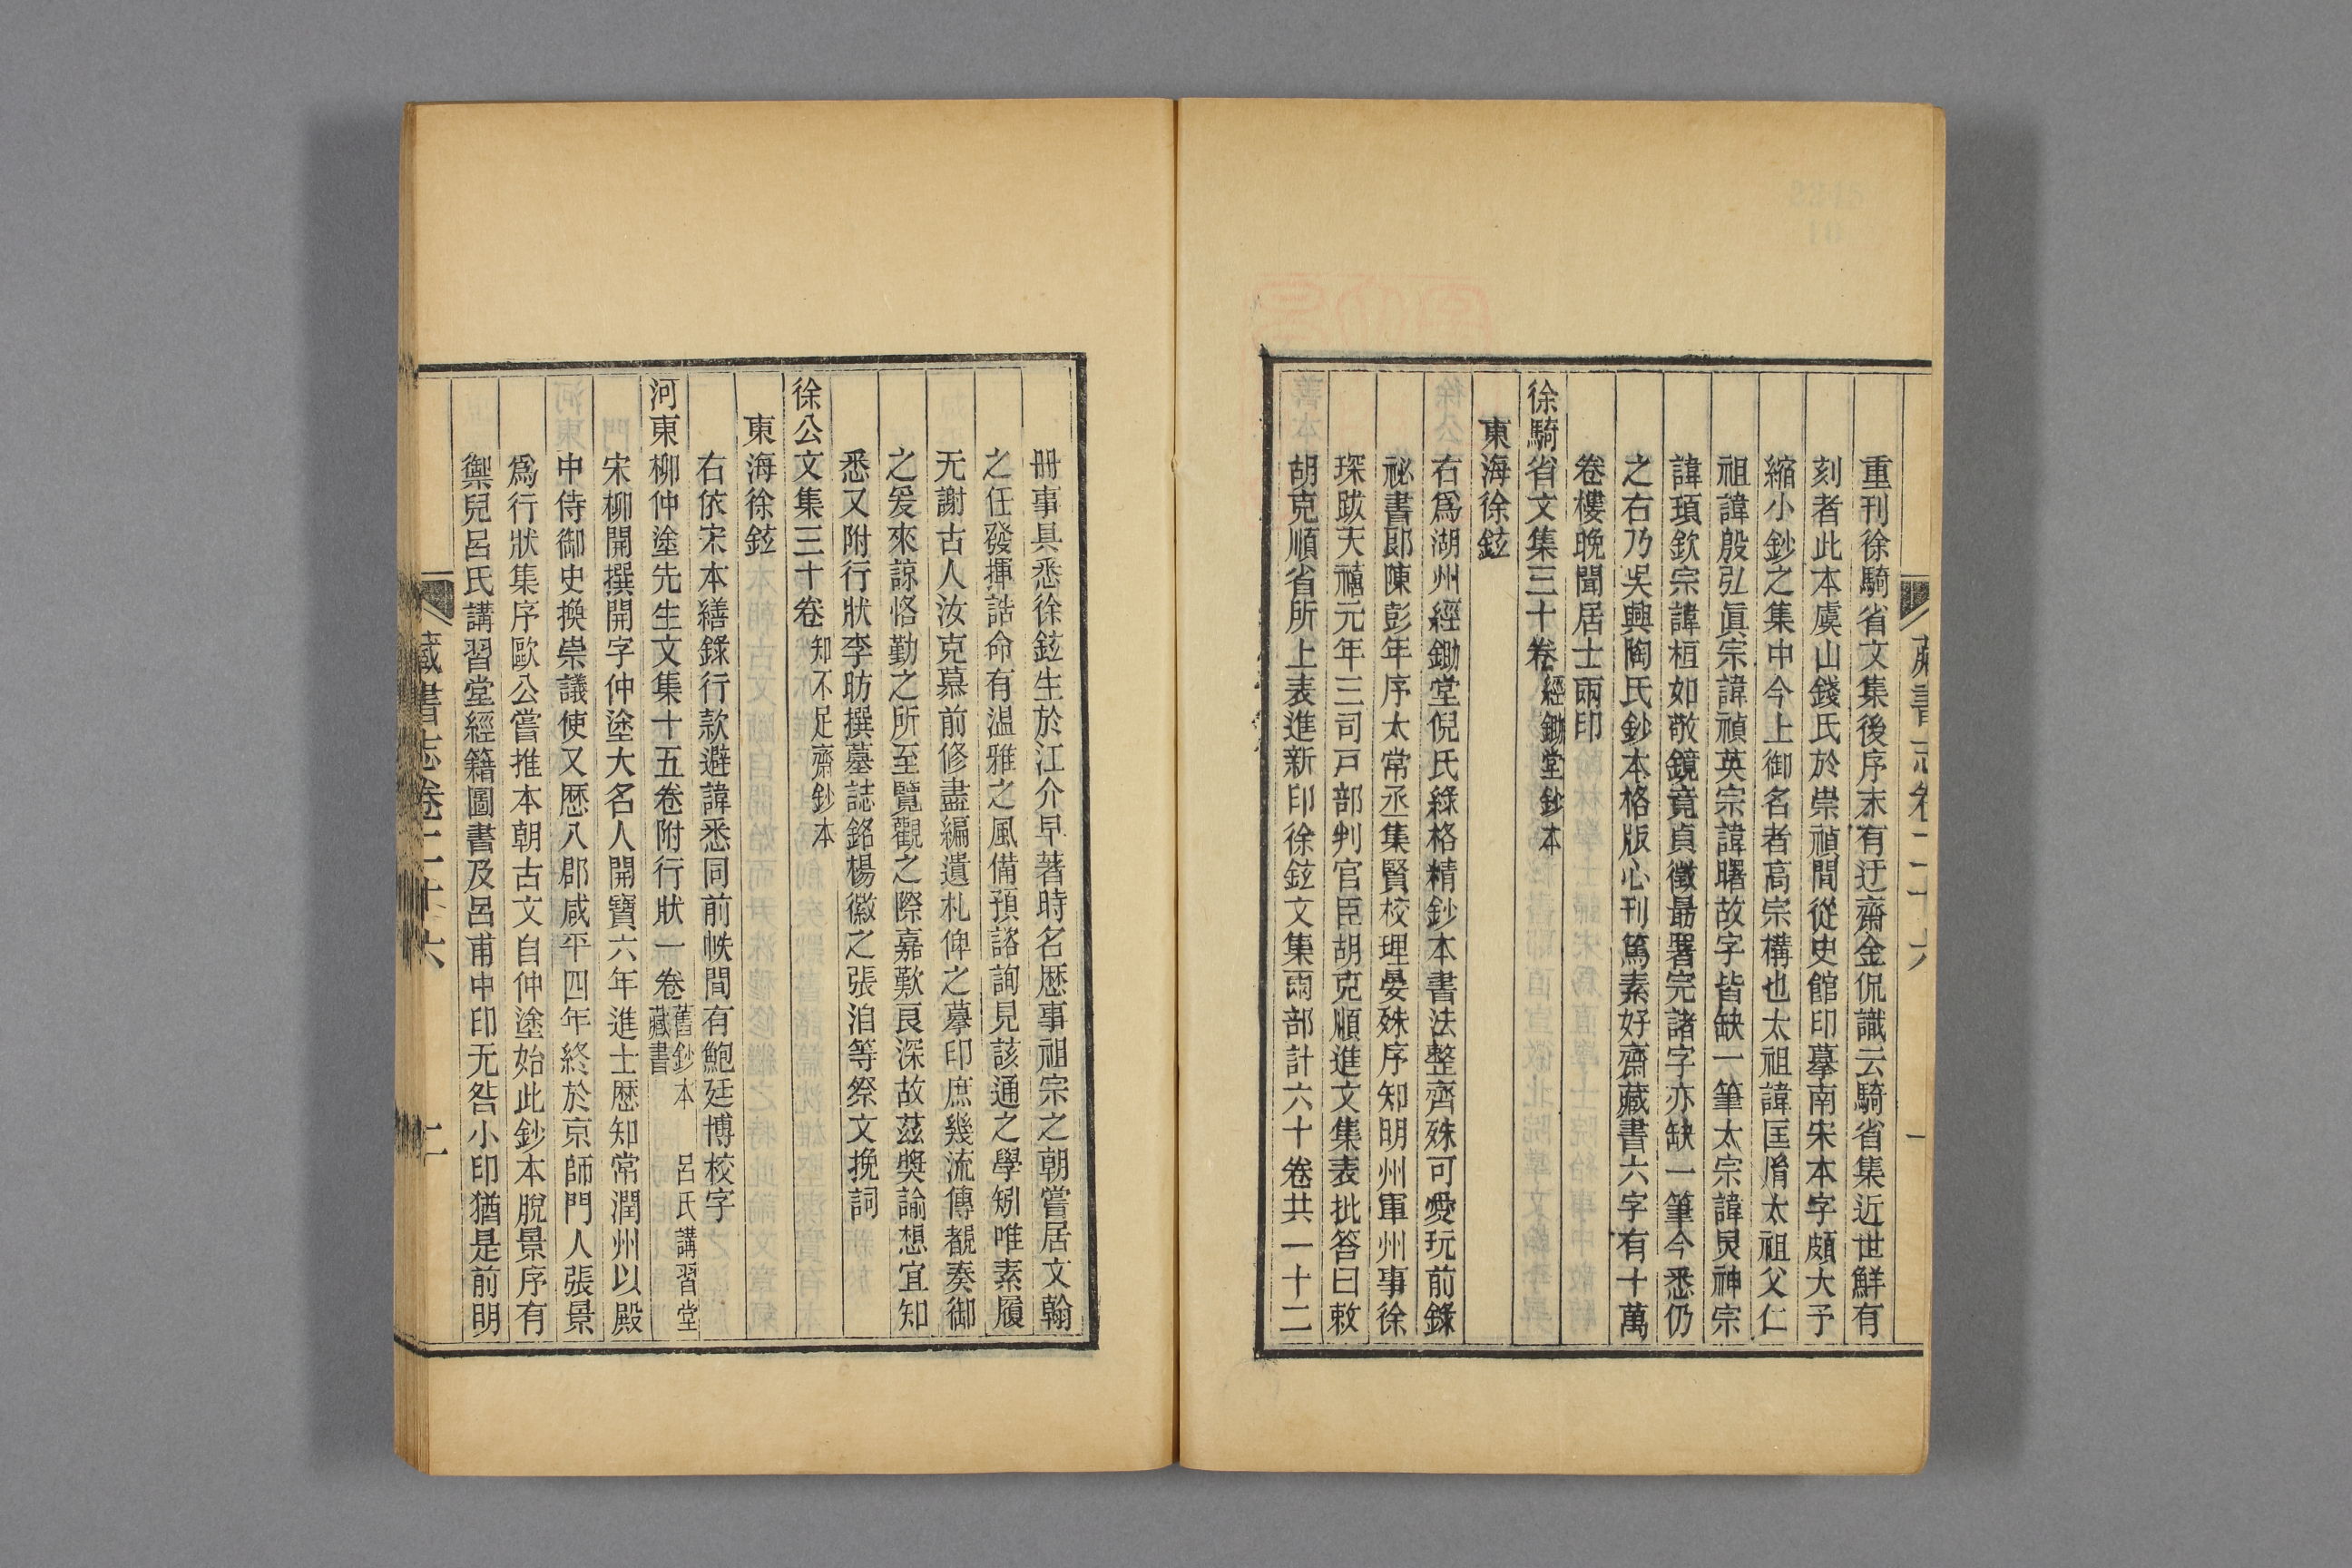 藏書志卷二十六 一
重刊徐騎省文集後序末有迂齋金侃識云騎省集近世鮮有
刻者此本虞山錢氏於崇禎間從史館印摹南宋本字頗大予
縮小鈔之集中今上御名者高宗構也太祖諱匡胤太祖父仁
祖諱殷弘眞宗諱禎英宗諱曙故字皆缺一筆太宗諱炅神宗
諱頊欽宗諱桓如敬鏡竟貞徵最署完諸字亦缺一筆今悉仍
之右乃吳興陶氏鈔本格版心刊篤素好齋藏書六字有十萬
卷樓晚聞居士兩印
徐騎省文集三十卷經鋤堂鈔本
東海徐鉉
右爲湖州經鋤堂倪氏綠格精鈔本書法整齊殊可愛玩前錄
祕書郞陳彭年序太常丞集賢校理晏殊序知明州軍州事徐
琛跋天禧元年三司戸部判官臣胡克順進文集表批答曰敕
胡克順省所上表進新印徐鉉文集兩部計六十卷共一十二
冊事具悉徐鉉生於江介早著時名歷事祖宗之朝嘗居文翰
之任發揮誥命有溫雅之風備預諮詢見該通之學矧唯素履
无謝古人汝克慕前修盡編遺札俾之摹印庶幾流傳覩奏御
之爰來諒恪勤之所至覽觀之際嘉歎良深故茲奬諭想宜知
悉又附行狀李昉撰墓誌銘楊徽之張洎等祭文挽詞
徐公文集三十卷知不足齋鈔本
東海徐鉉
右依宋本繕錄行款避諱悉同前帙間有鮑廷博校字
河東柳仲塗先生文集十五卷附行狀一卷舊鈔本 呂氏講習堂藏書
宋柳開撰開字仲塗大名人開寶六年進士歷知常潤州以殿
中侍御史換崇議使又歷八郡咸平四年終於京師門人張景
爲行狀集序歐公嘗推本朝古文自仲塗始此鈔本脫景序有
禦兒呂氏講習堂經籍圖書及呂甫中印无咎小印猶是前明
藏書志卷二十六 二